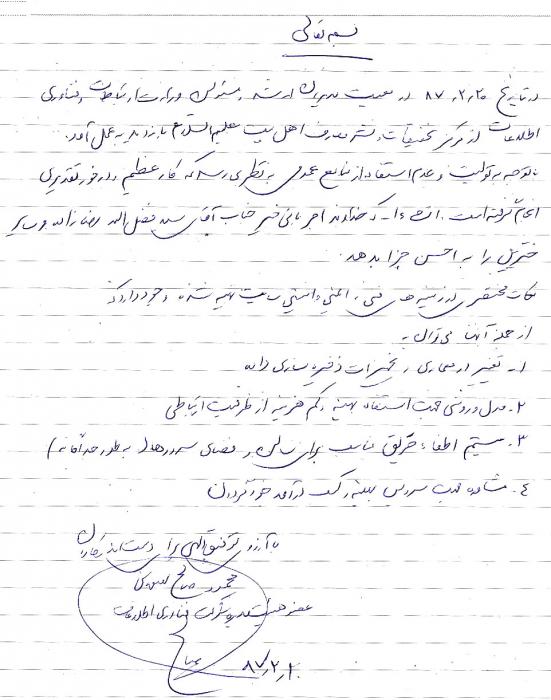 بسمه تعالی
در تاریخ ۸۷,۲,۲۰ در معیت مدیران ارشد و مسئولین وزارت ارتباطات و فناوری
اطلاعات از مرکز تحقیقات و نشر معارف اهل بیت علیهم السلام بازدید به عمل آمد.
با توجه به و عدم استفاده از منابع عمومی به نظر می رسد که کار عظیم و در خور تقدیری
انجام گرفته است. انشاءا... که خداوند اجر بانی خیر جناب آقای سید
را به احسن جزا بدهد.
نکات مختصری در زمینه های فنی، ایمنی و امنیتی سایت تهیه شده وجود دارد که
از جمله آنها می توان به
۱- تغییر در معماری و تجهیزات ذخیره سازی داده
۲. مدل و روشی جهت استفاده بهینه و کم هزینه از ظرفیت ارتباطی
۳. سیستم اطفاء حریق مناسب برای سالن و فضای سرورها (به طور جداگانه)
۴. مشاوره جهت سرویس بهینه و کسب درآمد خودگردان
با آرزوی توفیق الهی برای دست اندرکاران
محمود
عضو هیئت مدیره شرکت فناوری اطلاعات
۸۷,۲,۲۰